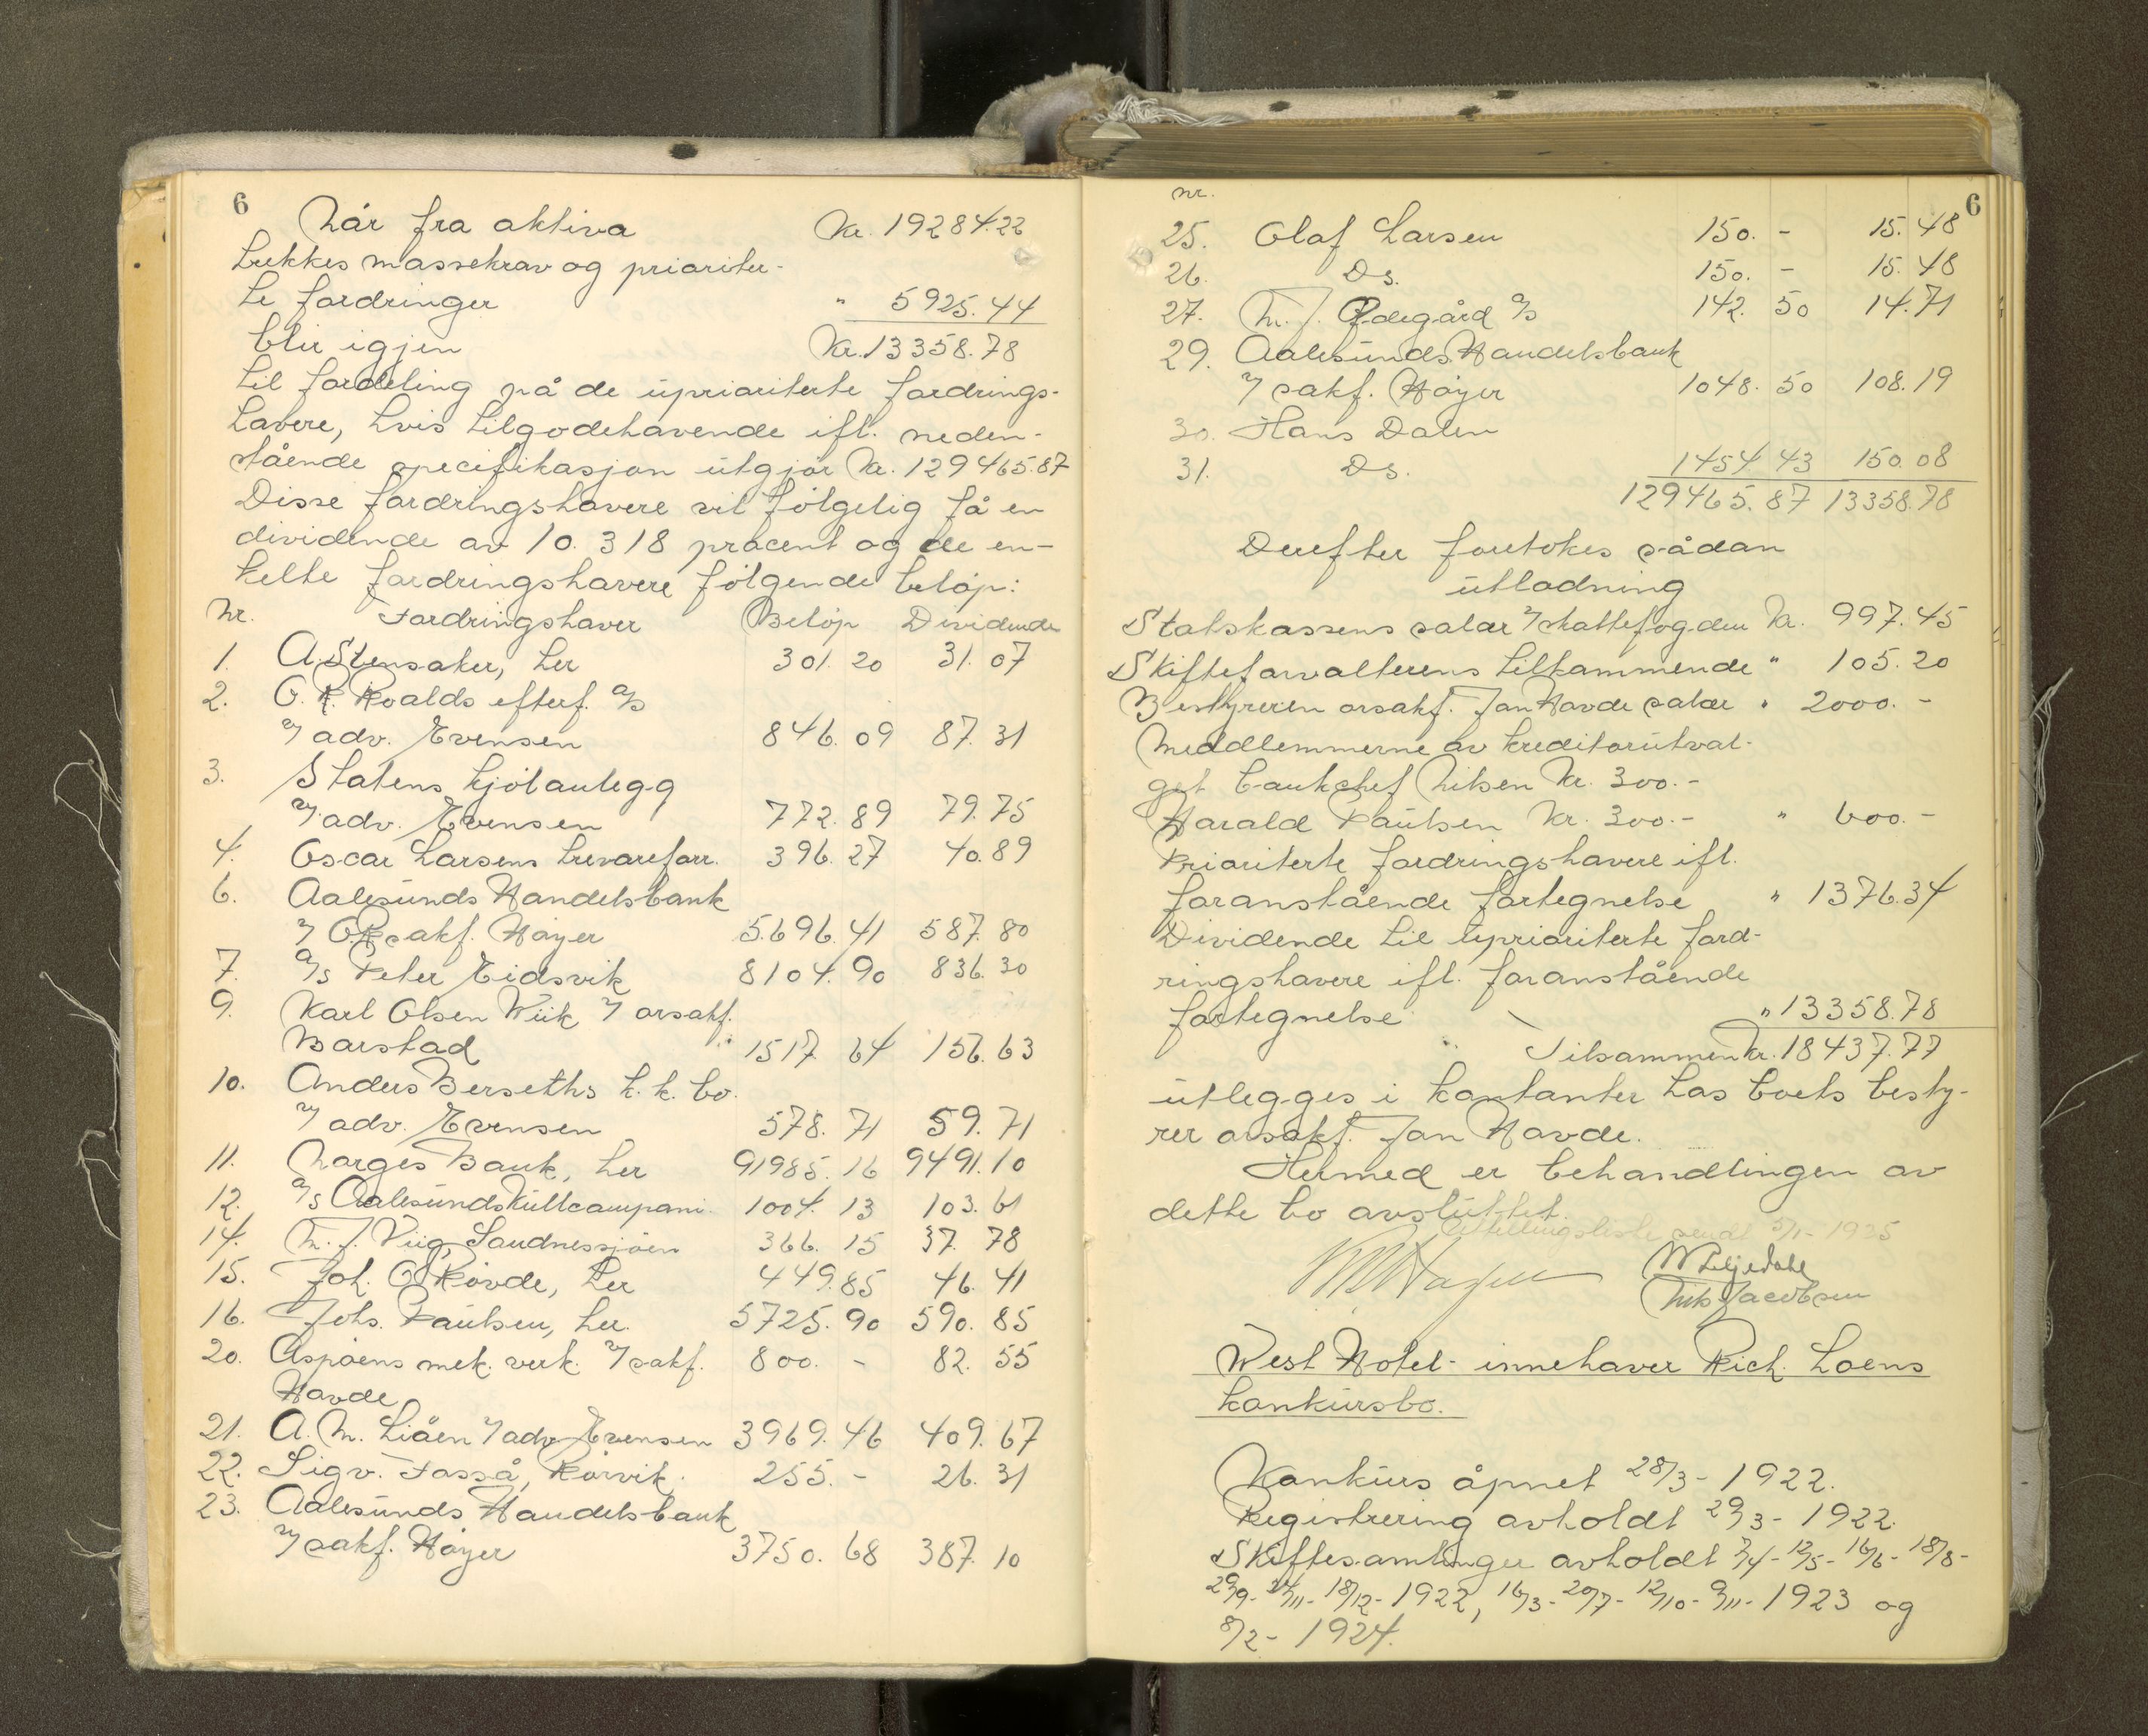 6
Når fra aktiva Kr. 19284.22
trekkes massekrav og prioriter-
te fordringer " 5925.44
blir igjen Kr. 13358.78
til fordeling på de uprioriterte fordrings-
havere, hvis tilgodehavende ifl. neden-
stående specifikasjon utgjør Kr. 129465.87
Disse fordringshavere vil følgelig få en
dividende av 10.318 procent og de en-
kelte fordringshavere følgende beløp:
Nr. Fordringshaver Beløp Dividende
1. A. Stensaker, her 301.20 31.07
2. O. R. Roalds efterf. A/S
v/ adv. Evensen 846.09 87.31
3. Statens kjølanlegg
v/ adv. Evensen 772.89 79.75
4. Oscar Larsens trevareforr. 396.27 40.89
6. Aalesunds Handelsbank
v/ O.R. sakf. Høyer 5.696.41 587.80
7. A/S Peter Eidsvik 8104.90 836.30
9. Karl Olsen Wiik v/ orsakf.
Barstad 1517.64 156.63
10. Anders Berseths k.k. bo.
v/ adv. Evensen 578.71 59.71
11. Norges Bank, her 91985.16 9491.10
12. A/S Aalesunds Kullcompani 1004.13 103.61
14. M. J. Viig, Sandnessjøen 366.15 37.78
15. Joh. O. Røvde, her 449.85 46.41
16. Johs. Paulsen, her. 5725.90 590.85
20. Aspøens mek. verk. v/ sakf. 800. - 82.55
Havde
21. A. M. Liåen v/ adv. Evensen 3969.46 409.67
22. Sigv. Fosså, Rørvik. 255. - 26.31
23. Aalesunds Handelsbank
v/ sakf. Høyer 3750.68 387.10
nr. 6
25. Olaf Larsen 150. - 15.48
26. Ds. 150. - 15.48
27. M. J. Ødegård A/S 142.50 14.71
29. Aalesunds Handelsbank
v/ sakf. Høyer 1048.50 108.19
30. Hans Dalen
31. Ds. 1454 43 150.08
129465.87 13358.78
Derefter foretokes sådan
utlodning
Statskassens salær v/ skattefogden Kr. 997.45
Skifteforvalterens tilkommende " 105.20
Bestyreren orsakf. Jan Havde salær " 2000. -
Meddlemmerne av kreditorutval-
get bankchef Nilsen Kr. 300.-
Harald Paulsen Kr. 300.- " 600.-
Prioriterte fordringshavere ifl.
foranstående fortegnelse " 1376.34
Dividende til uprioriterte ford-
ringshavere ifl. foranstående
fortegnelse " 13358.78
Tilsammen Kr. 18437.77
utlegges i kontanter hos boets besty-
rer orsakf. Jan Havde.
Hermed er behandlingen av
dette bo avsluttet.
sendt 5/1-1925
W Liljedahl
Nils Jacobsen
West Hotel - innehaver Rich. Loens
konkursbo.
Konkurs åpnet 28/3 - 1922.
Registrering avholdt 29/3 - 1922.
Skiftesamlinger avholdt 7/4 - 12/5 - 16/6 - 18/8 -
29/9 - 24/11 - 18/12 - 1922, 16/3 - 20/7 - 12/10 - 9/11 - 1923 og
8/2 - 1924.